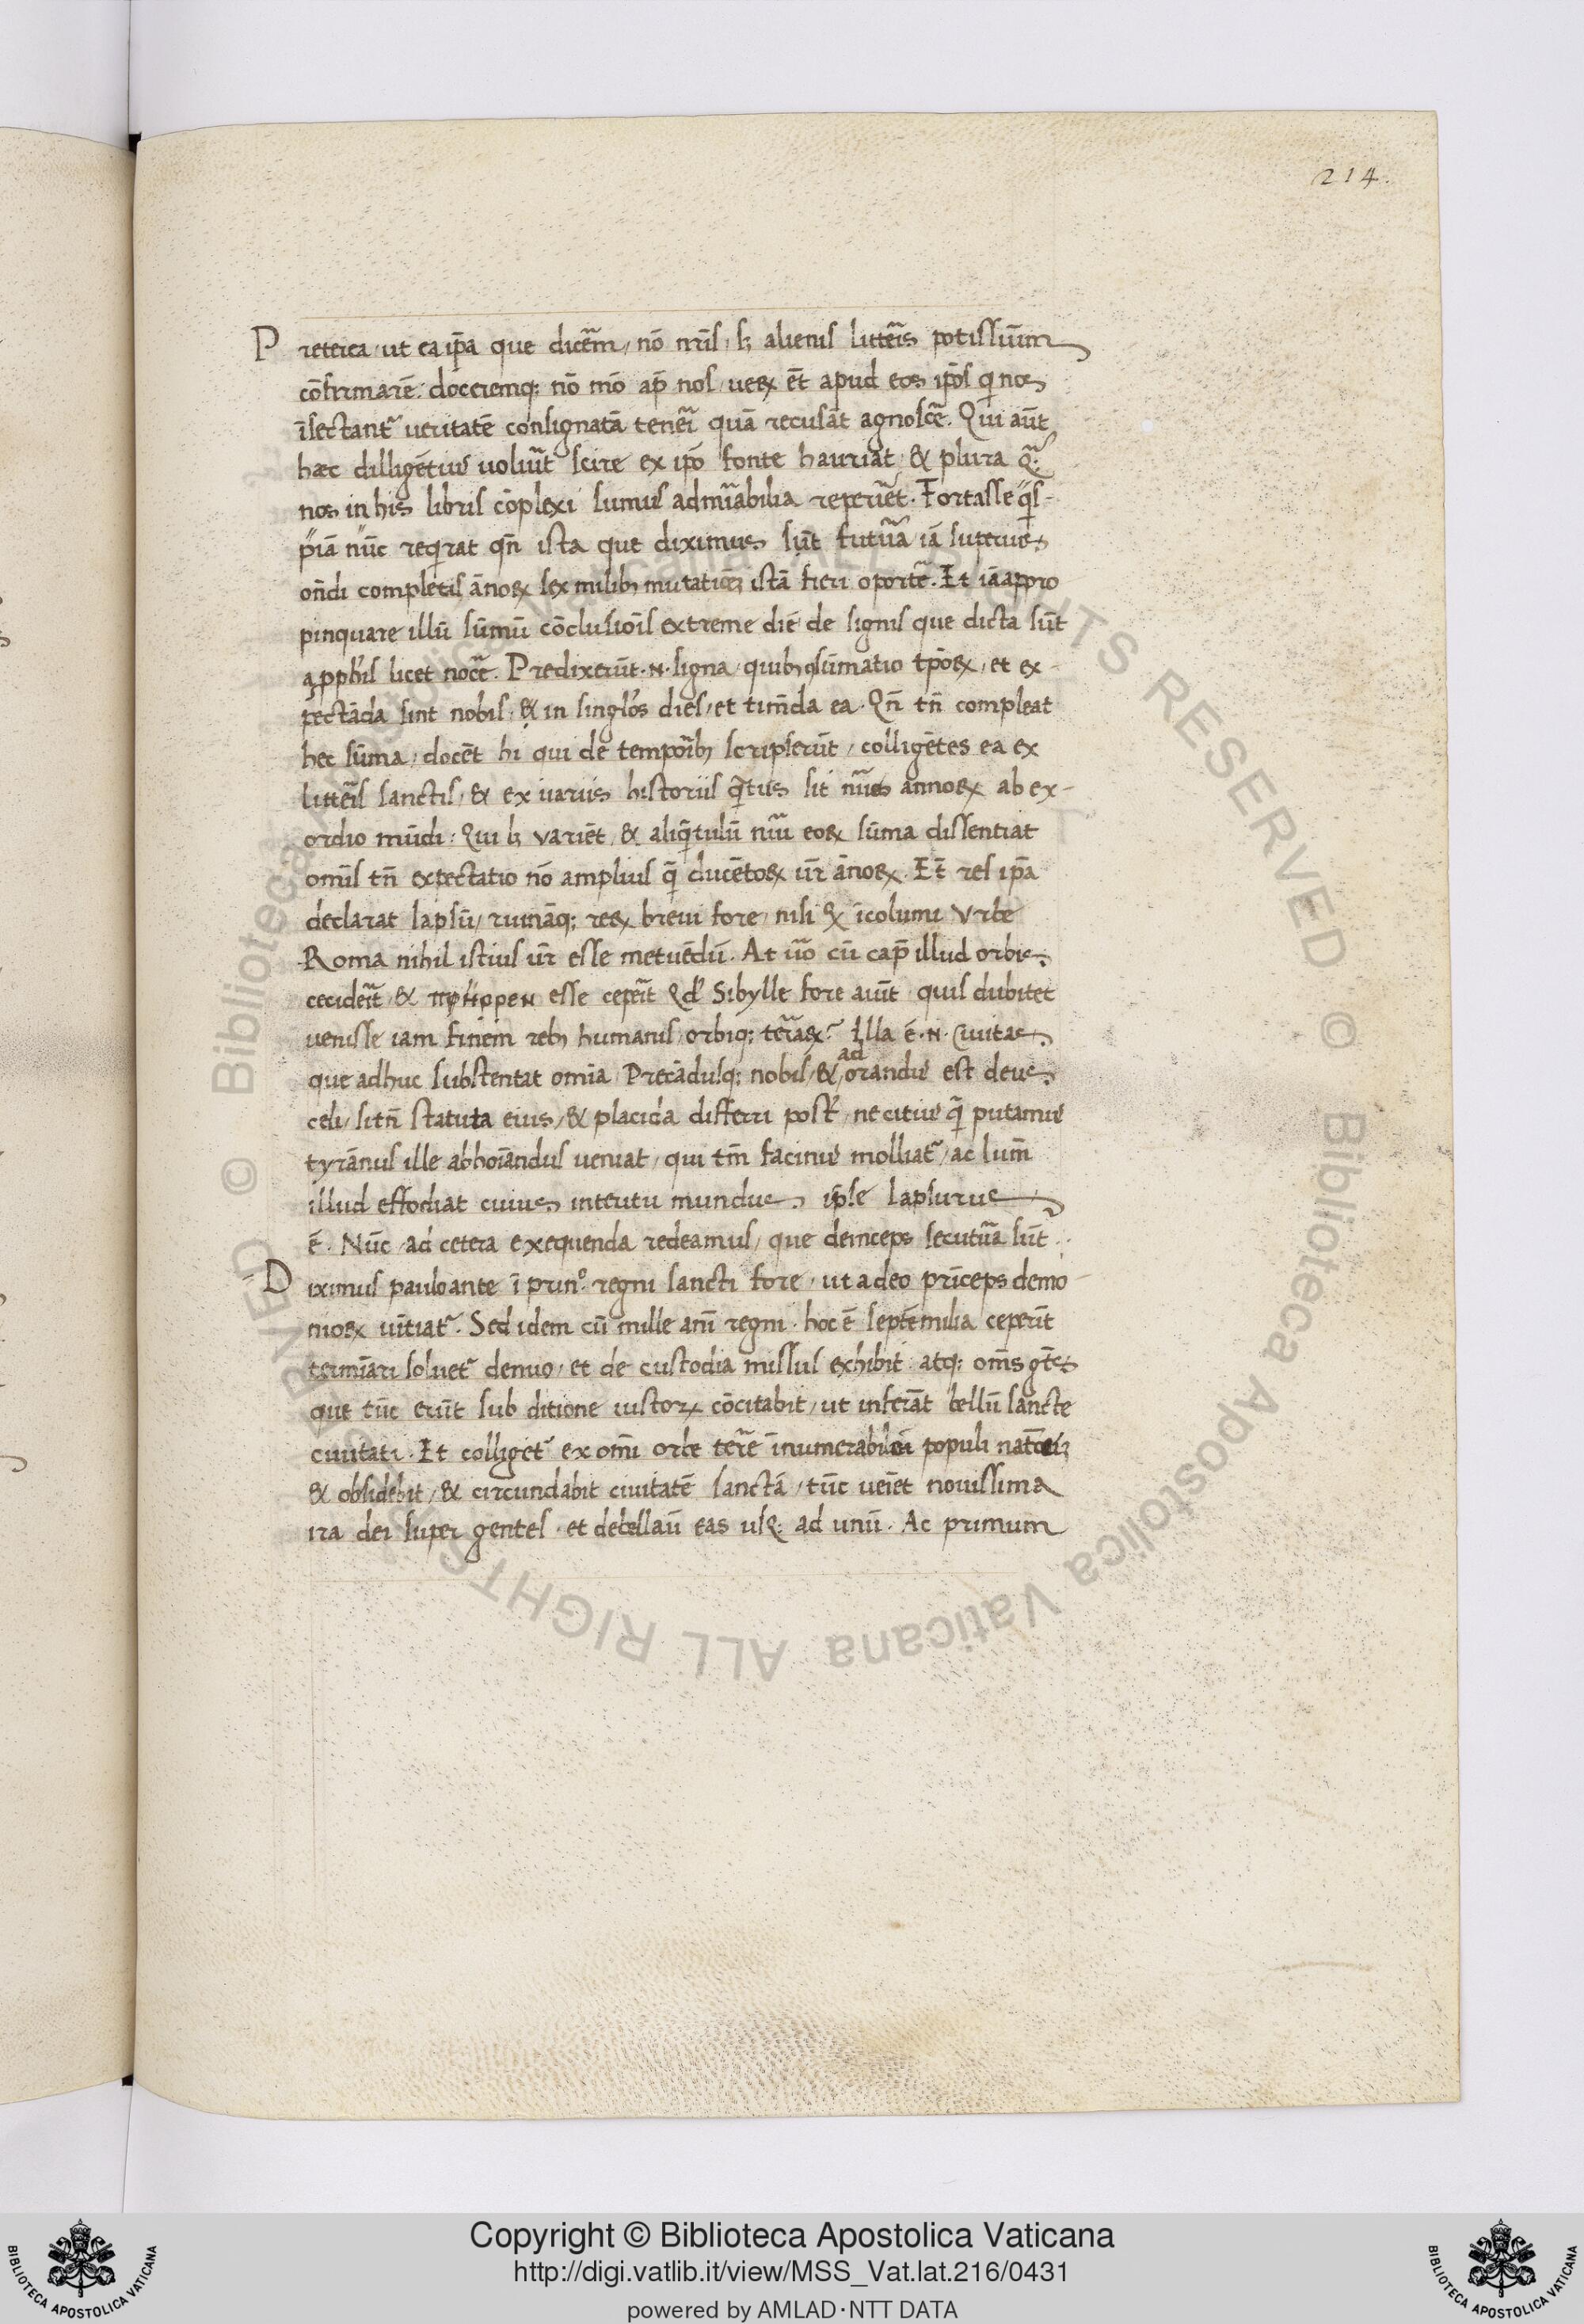 214.
Preterea, ut ea ip̄a que dicēm, nō nr̄is, sȝ alienis litter̄is potissiūm
cōfirmarē: doceremq; nō mō ap̄ nos, ueꝝ ēt apud eos ip̄os qi nos
īsectant᷑ ueritatē consignatā teneri quā recusāt agnoscē. Qui aūt
hæc dilligētius uolūt scire ex ip̄o fonte hauriāt & plura q̄
nos in his libris cōplexi sumus admīabilia reperiēt. Fortasse qis-
piā nūc reqirat qn̄ ista que diximus sūt futūa iā superius
on̄di completis ānoꝝ sex milibȝ mutationeȝ istā fieri oportē. Et iā appro
pinquare illū sūmū cōclusiōis extreme diē de signis que dicta sūt
a ꝓph̄is licet nocē. Predixerūt .N. signa quibȝ ꝯsūmatio tp̄oꝝ, et ex-
pectāda sint nobis, & in singlo̅s dies, et tim̄da ea. Qn̄ tn̄ compleat
hec sūma, docēt hi qui de temporibȝ scripserūt, colligētes ea ex
litter̄is sanctis, & ex uariis historiis qātus sit nūs annoꝝ ab ex-
ordio mūdi: Qui sȝ variēt, & aliqātulū nūi eoꝝ sūma dissentiat
omīs tn̄ expectatio nō amplius q̄ ducētoꝝ ur̄ ānoꝝ. Et̄ res ip̄a
declarat lapsū, ruināq; reꝝ breui fore, nisi ꝙ īcolumi Vrbe
Roma nihil istius ur̄ esse metuēdū. At ūo cū cap̄ illud orbis
ceciderit, & esse ceperit qd̄ Sibylle fore aiūt quis dubitet
uenisse iam finem rebȝ humanis, orbiq; terraꝝ? Illa ē .N. Ciuitas
que adhuc subst̄entat omīa. Precādusq; nobis, & adorandus est deus
celi, si tn̄ statuta eius, & placida differri post̄, ne citius q̄ putamus
tyrānus ille abhoīandus ueniat, qui tm̄ facinus molliat᷑, ac lum̄
illud effodiat cuius interitu mundus ip̄se lapsurus
ē. Nūc ad cetera exequenda redeamus, que deinceps secutūa sūt.
Diximus paulo ante ī prin° regni sancti fore, ut a deo prīceps demo-
nioꝝ uītiat᷑. Sed idem cū mille anī regni, hoc ē septē milia ceperīt
termīari soluet᷑ denuo, et de custodia missus exhibit: atq; oms gēt̄es
que tūc erūt sub ditione iustoꝝ cōcitabit, ut inferāt bellū sancte
ciuitati. Et colliget᷑ ex omī orbe terre īnumerabilis populi
& obsidebit, & circundabit ciuitatē sanctā, tūc ueiet nouissima
ira dei super gentes, et debellaū eas usq; ad unū. Ac primum
Copyright © Biblioteca Apostolica Vaticana
http://digi.vatlib.it/view/MSS_Vat.lat.216/0431
powered by AMLAD·NTT DATA